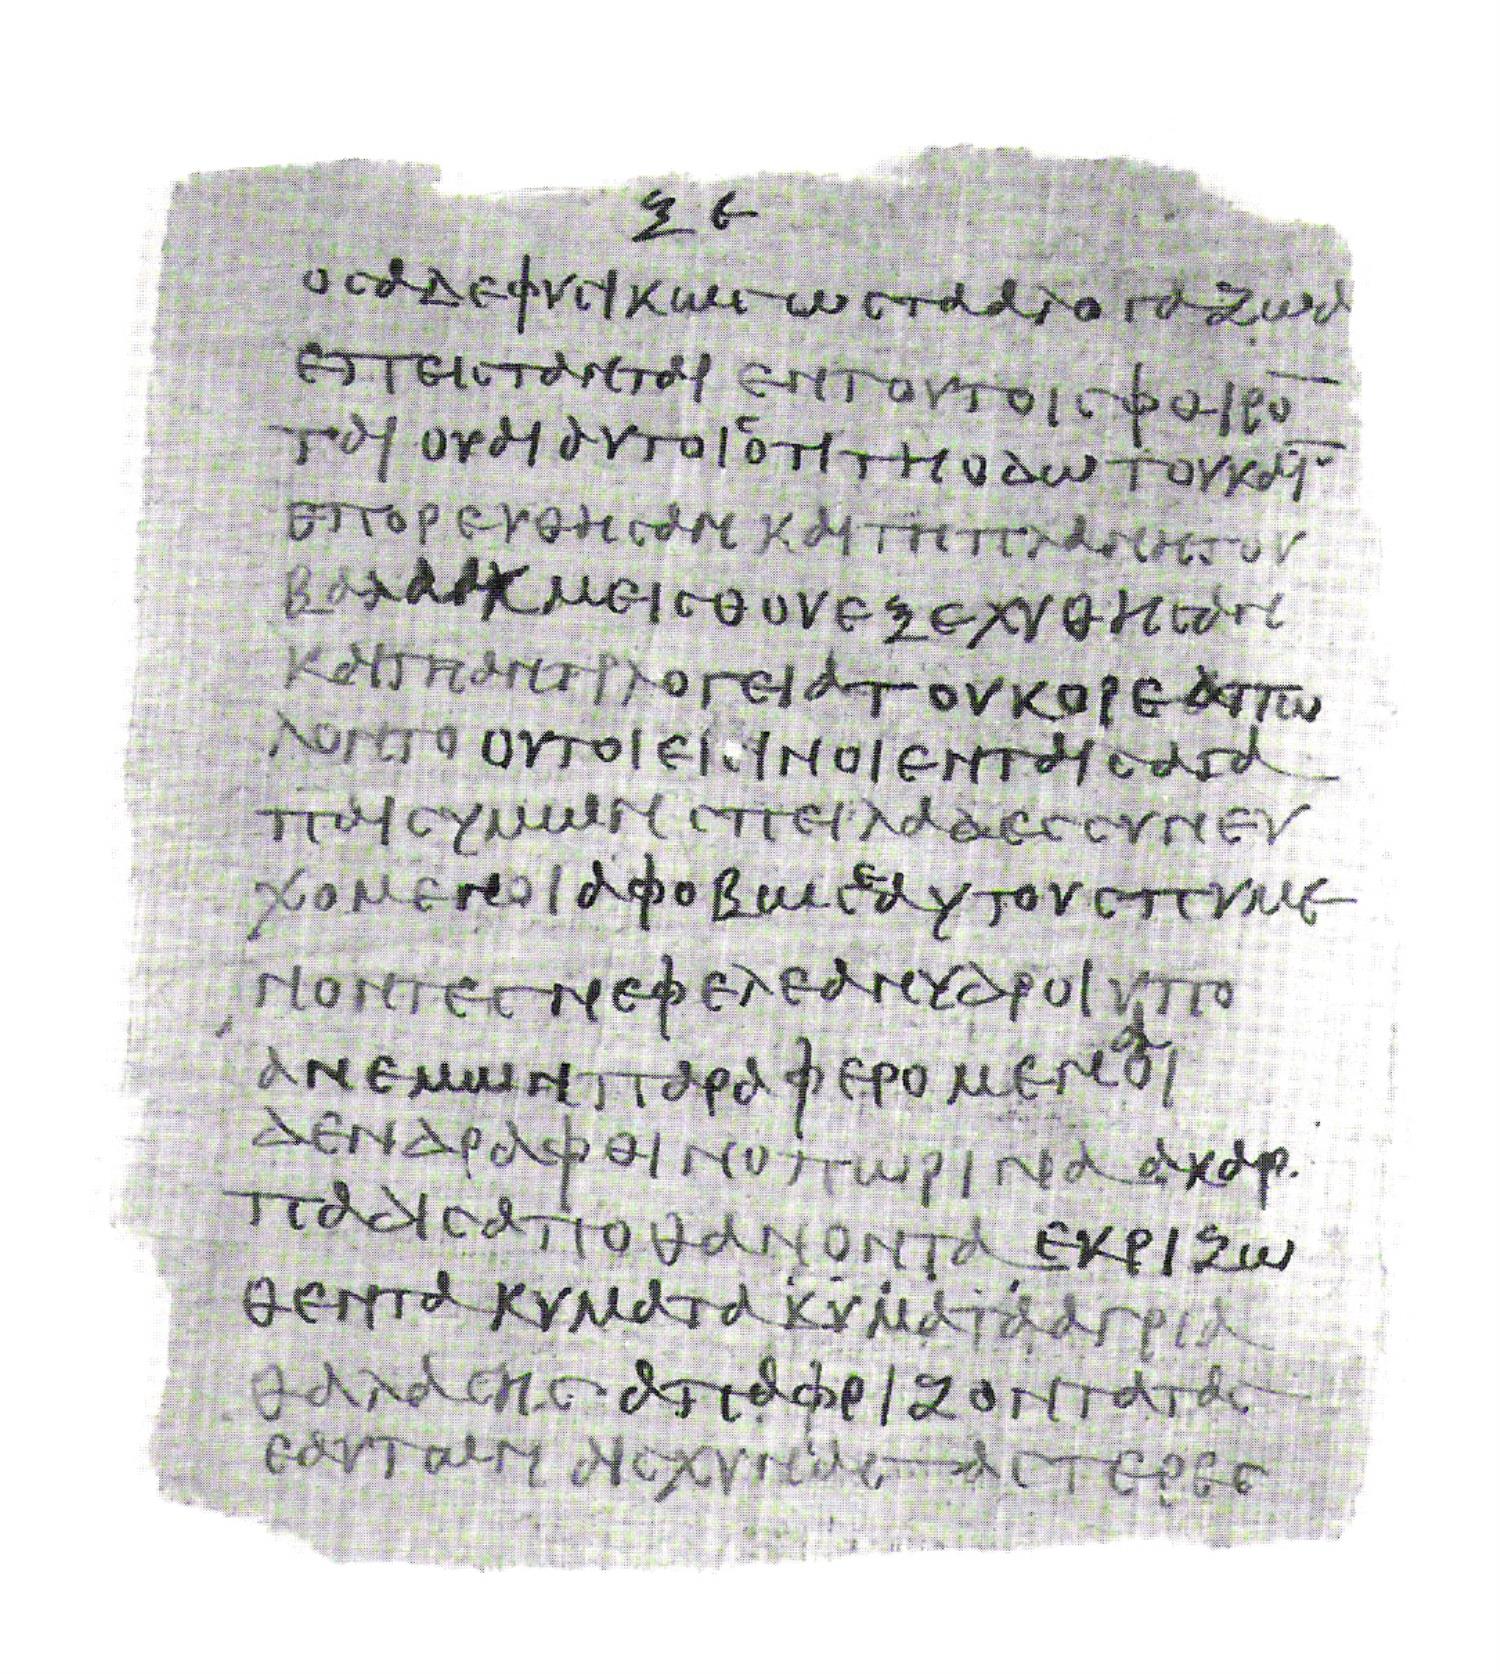 ξε
οϲαδεφυϲικωϲωϲτααλογαζωα
επειϲτανταιεντουτοιϲφθιρο̅
ταιουαιαυτοιϲοτιτηοδωτουκαι̅
επορευθηϲανκαιτηπλανητου
βαλαακμειϲθουεξεχυθηϲαν
καιτηαντιλογειατουκορεαπω
λοντοουτοιειϲινοιενταιϲαγα
παιϲυμωνϲπειλαδεϲϲυνευ
χομενοιαφοβωϲεαυτουϲπυμε
νοντεϲνεφελεανυδροιυπο
ανεμωνπαραφερομενοαι
δενδραφθινοπωρινα ακαρ
παδιϲαποθανονταεκριζω
θεντακυματακ̇υ̇μ̇α̇τ̇α̇αγρια
θαλαϲηϲαπαφριζονταταϲ
εαυτωναιϲχυναϲαϲτερεϲ